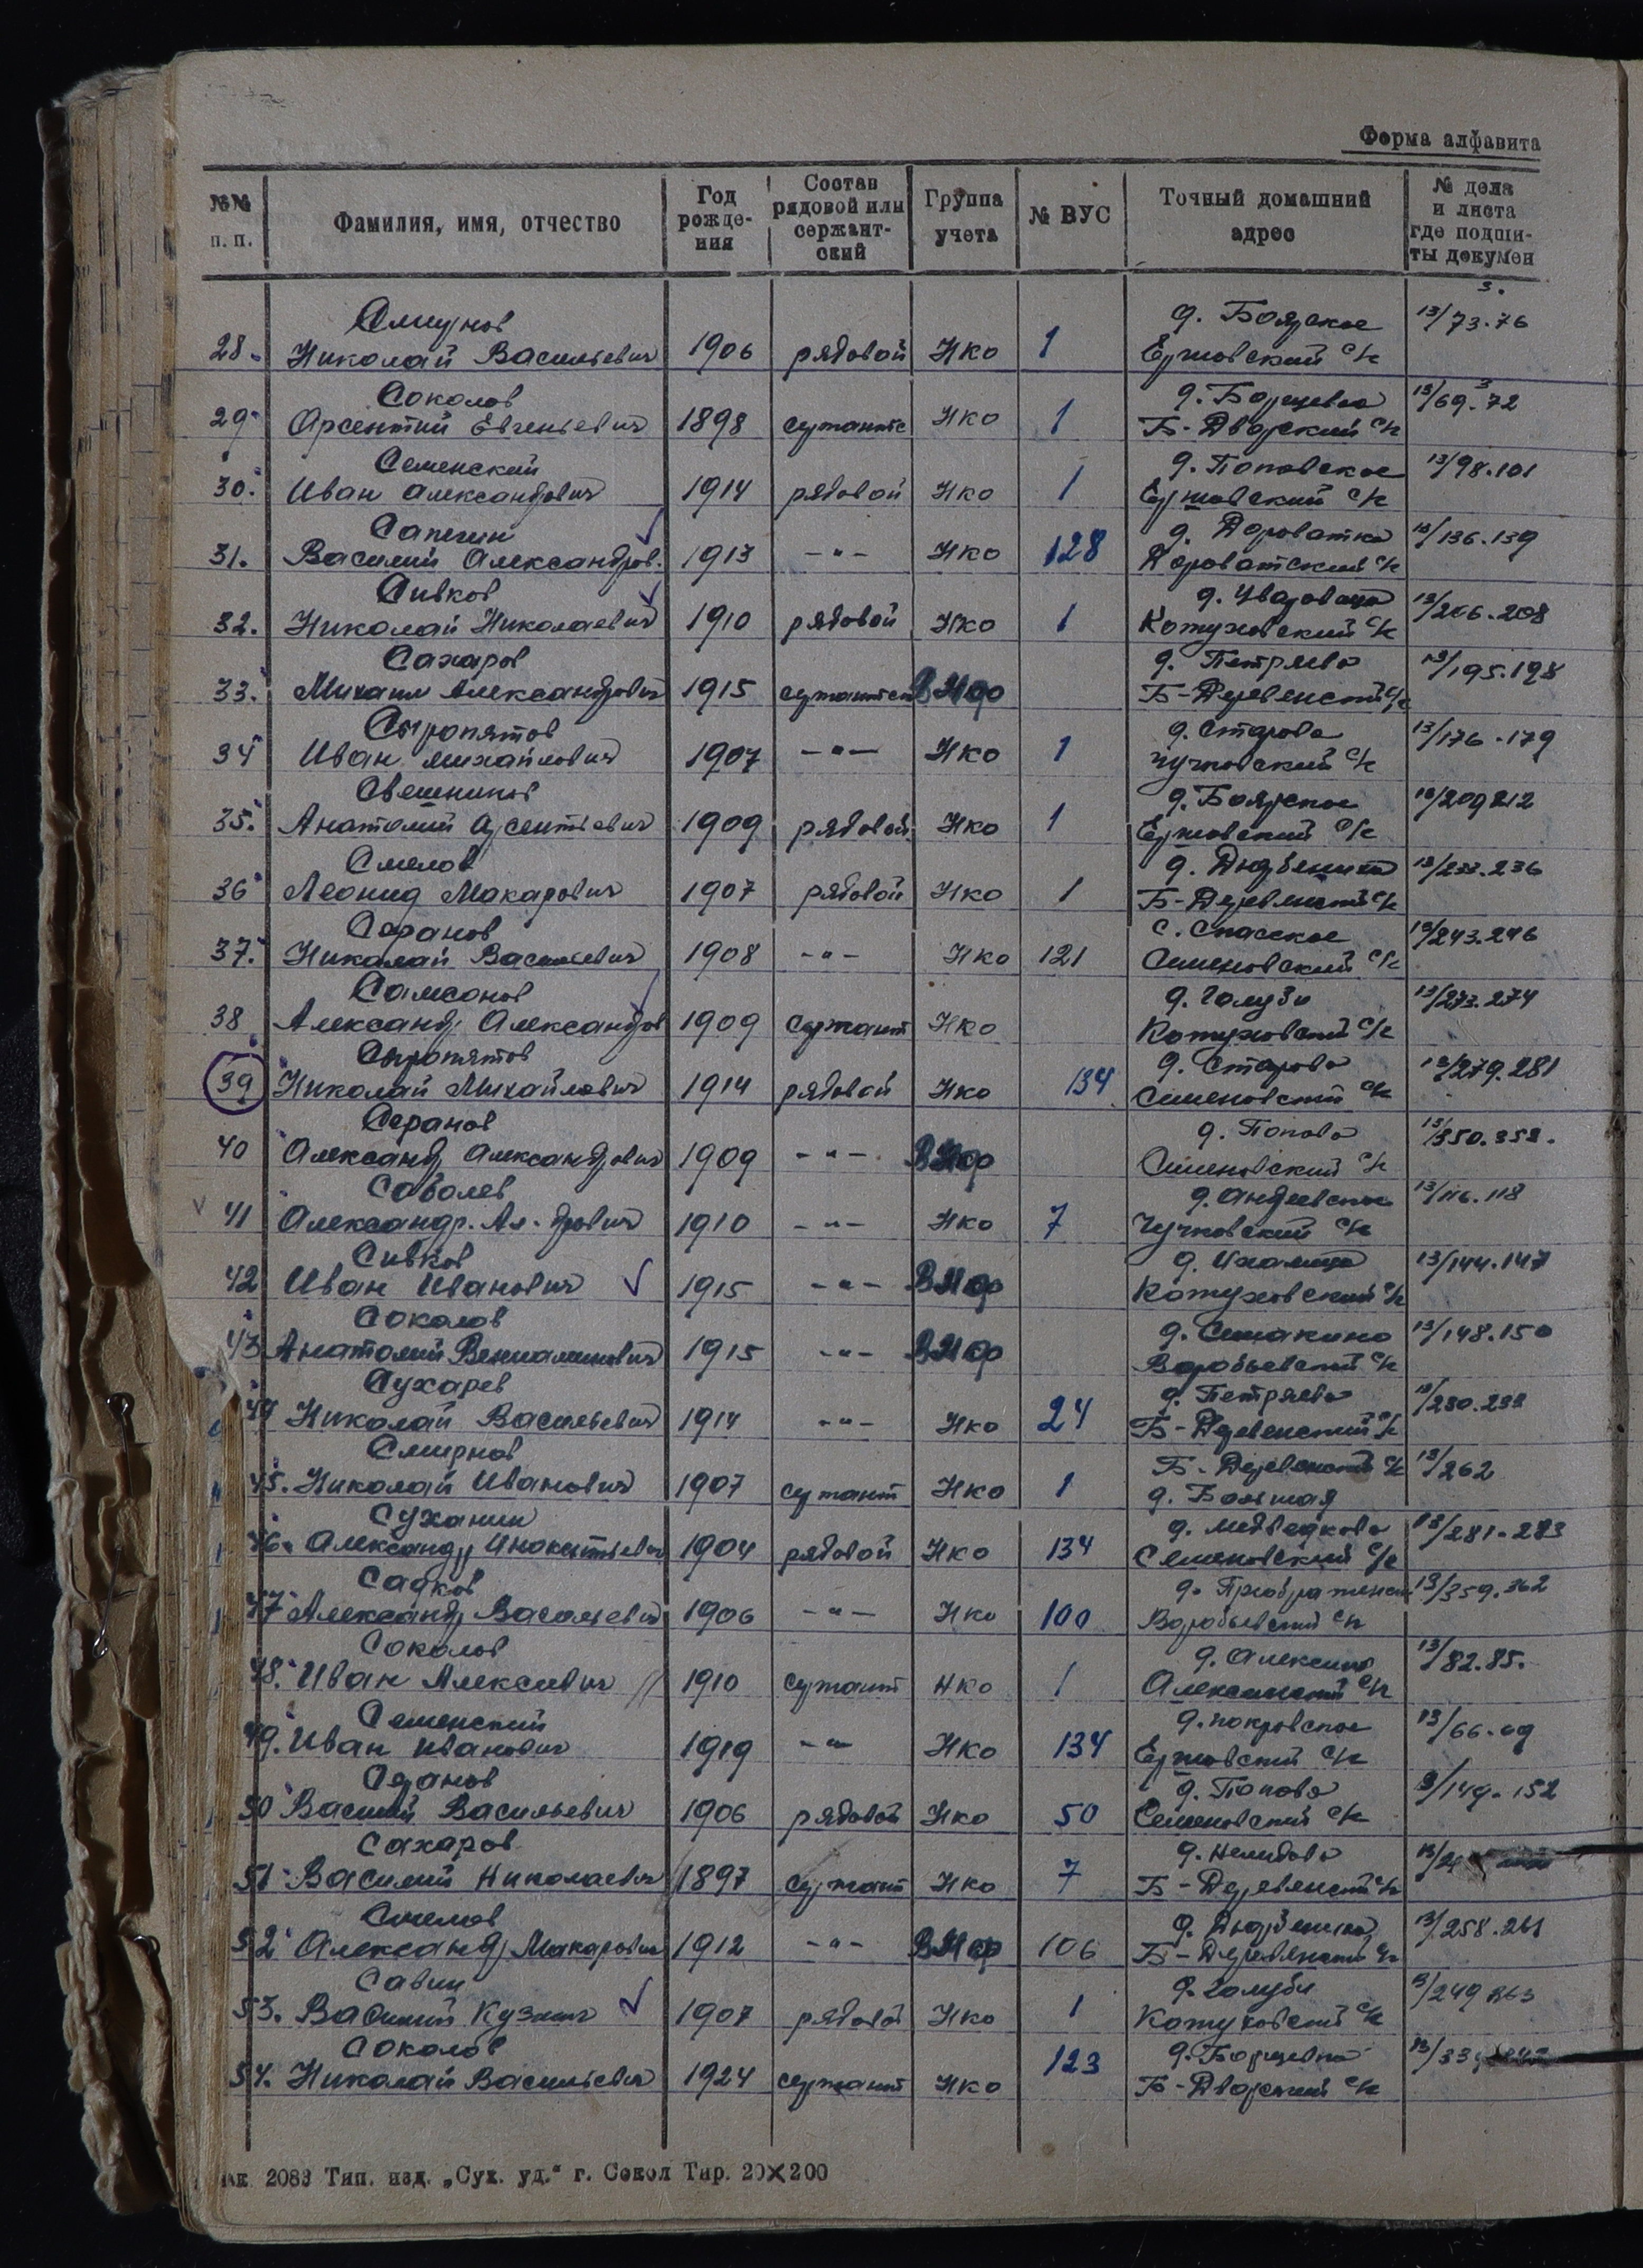 Форма алфавита
№№ п. п. Фамилия, имя, отчество Год рожде-ния Состав рядовой или сержант-ский Группа учета № ВУС Точный домашний адрес № дела и листа где подши-ты докумен
3.
Смирнов д. Боярское 13/73-76
28. Николай Васильевич 1906 рядовой Нко 1 Ершовский с/с
Соколов д. Борщевка 13/69-72
29 Арсентий Евгеньевич 1898 сержантс Нко 1 Б-Дворский с/с
Семенский д. Поповское 13/98.101
30. Иван Александрович 1914 рядовой Нко 1 Ершовский с/с
Сапегин д. Дороватка 13/136.139
31. Василий Александров. 1913 -"- Нко 128 Дороватский с/с
Сивков д. 13/206.208
32. Николай Николаевич 1910 рядовой Нко 1 Кожуховский с/с
Сахаров д. Петряево 13/195.198
33. Михаил Александрович 1915 сержантск ВНор Б-Деревенский с/с
Сыропятов д. Старово 13/176-179
34 Иван Михайлович 1907 -"- Нко 1 Чучковский с/с
Свешников д. Боярское 13/209 212
35. Анатолий Арсентьевич 1909 рядовой Нко 1 Ершовский с/с
Смелов д. 13/233.236
36 Леонид Макарович 1907 рядовой Нко 1 Б-Деревенский с/с
Серанов с. Спасское 13/243.246
37. Николай Васильевич 1908 -"- Нко 121 Семеновский с/с
Самсонов д. Голузи 13/273.274
38 Александр Александров 1909 Сержант Нко Кожуховский с/с
Сыропятов д. Старово 13/279.281
39 Николай Михайлович 1914 рядовой Нко 134 Семеновский с/с
Серанов д. Попово 13/350.352.
40 Александр Александрович 1909 -"- ВНор Семеновский с/с
Соболев д. Андреевское 13/116.118
41 Александр. Ал-дрович 1910 -"- Нко 7 Чучковский с/с
Сивков д. Ихалица 13/144.147
42 Иван Иванович 1915 -"- ВНор Кожуховский с/с
Соколов д. Семакино 13/148.150
43 Анатолий Вениаминович 1915 -"- ВНор Воробьевский с/с
Сухарев д. Петряево
44 Николай Васильевич 1914 -"- Нко 24 Б-Деревенский с/с
Смирнов Б-Деревенский с/с 13/262
45. Николай Иванович 1907 сержант Нко 1 д. Большая
Суханин д. Медведково 13/281-283
46. Александр Инокентьевич 1904 рядовой Нко 134 Семеновский с/с
Садков д. Преображенск 13/359.362
47 Александр Васильевич 1906 -"- Нко 100 Воробьевский с/с
Соколов д. Алексино 13/82.85.
48. Иван Алексеевич 1910 сержант Нко 1 Алексинский с/с
Семенский д. Покровское 13/66-69
49. Иван Иванович 1919 -"- Нко 134 Ершовский с/с
Серанов д. Попово 3/149-152
50 Василий Васильевич 1906 рядовой Нко 50 Семеновский с/с
Сахаров д. Нелидово
51 Василий Николаевич 1897 Сержант Нко 7 Б-Деревенский с/с
Смелов д. 13/258.261
52 Александр Макарович 1912 -"- ВНор 106 Б-Деревенский с/с
Савин д. Голузи
53. Василий Кузмич 1907 рядовой Нко 1 Кожуховский с/с
Соколов д. Борщевка
54. Николай Васильевич 1924 сержант Нко 123 Б-Дворский с/с
ак. 2083 Тип. изд. „Сух. уд." г. Сокол Тир. 20×200